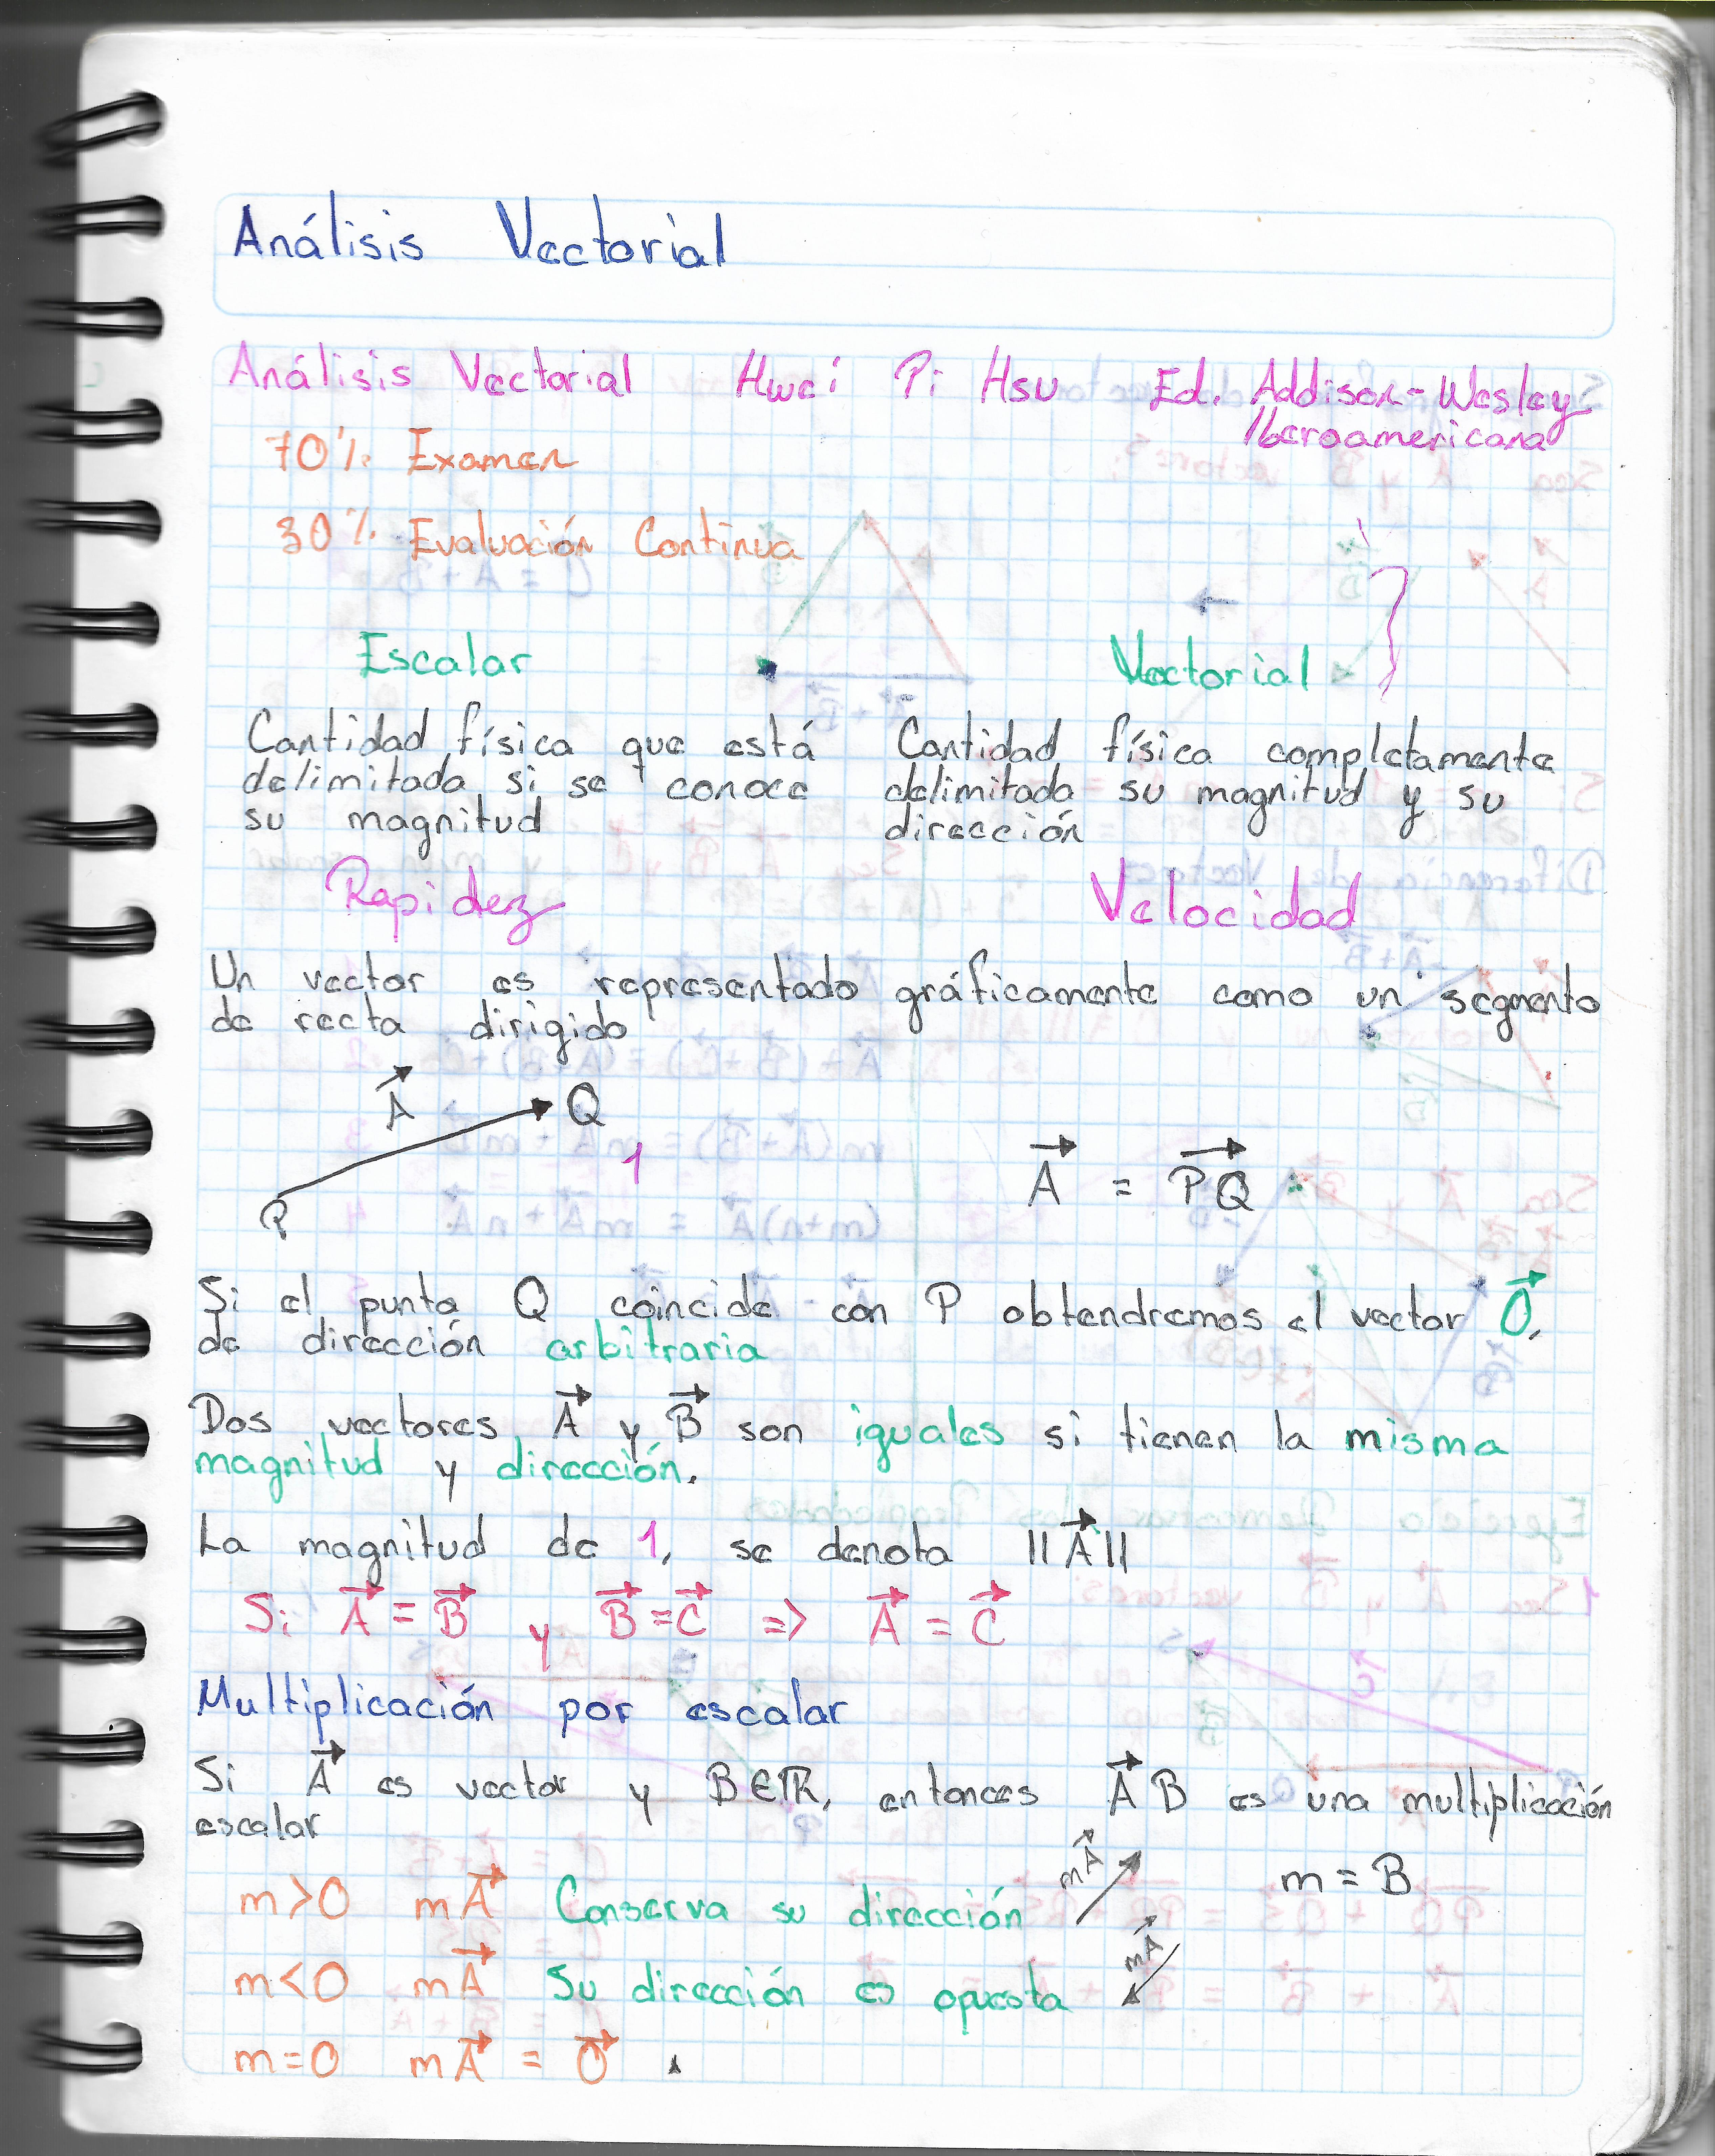 Análisis Vectorial
Análisis Vectorial Hwei Pi Hsu Ed. Addison-Wesley
Iberoamericana
70% Examen
30% Evaluación Continua
Escalar Vectorial
Cantidad física que está
delimitada si se conoce
su magnitud
Cantidad física completamente
delimitada su magnitud y su
dirección
Rapidez Velocidad
Un vector es representado gráficamente como un segmento
de recta dirigido
A⃗ Q
1
P
A⃗ = P⃗Q⃗
Si el punto Q coincide con P obtendremos el vector O⃗,
de dirección arbitraria
Dos vectores A⃗ y B⃗ son iguales si tienen la misma
magnitud y dirección.
La magnitud de 1, se denota ||A⃗||
Si A⃗ = B⃗ y B⃗ = C⃗ => A⃗ = C⃗
Multiplicación por escalar
Si A⃗ es vector y B∈ℝ, entonces A⃗ B es una multiplicación
escalar
m>0 mA⃗ Conserva su dirección mA⃗ m = B
m<0 mA⃗ Su dirección es opuesta mA⃗
m=0 mA⃗ = O⃗